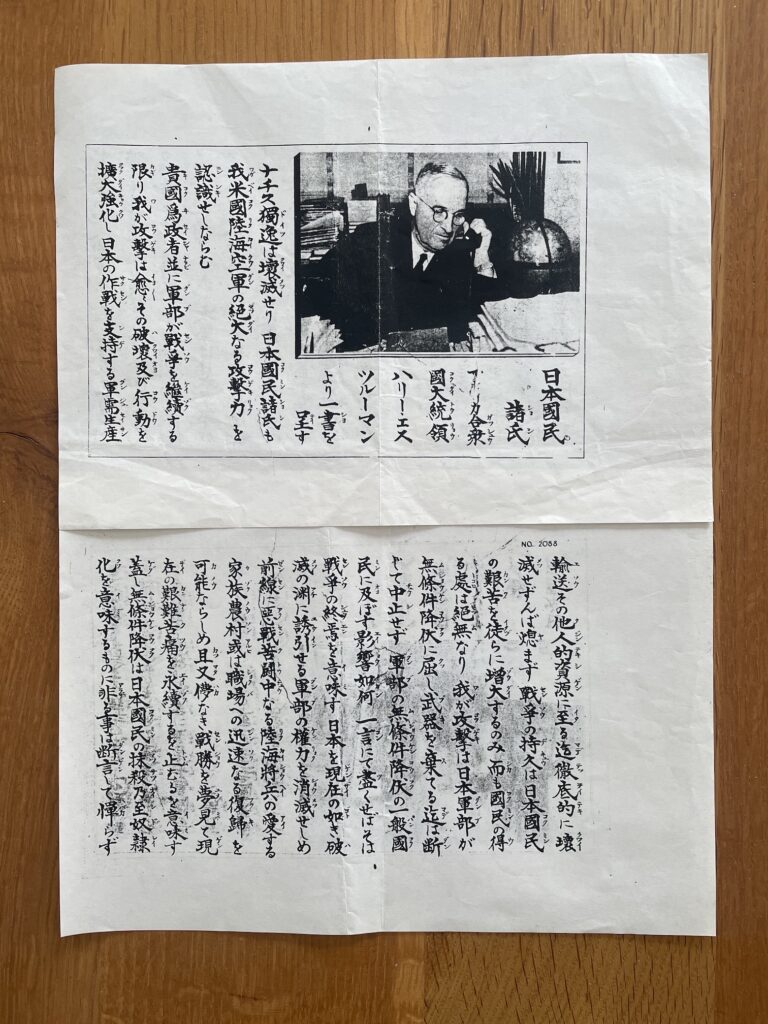 日本國民
諸氏
アメリカ合衆
國大統領
ハリー・エス
ツルーマン
より一書を
呈す
ナチス獨逸は壞滅せり 日本國民諸氏も
我米國陸海空軍の絕大なる攻擊力を
認識せしならむ
貴國爲政者並に軍部が戰爭を繼續する
限り我が攻擊は愈々その破壞及び行動を
擴大強化し日本の作戰を支持する軍需生産
NO. 2088
輸送その他人的資源に至る迄徹底的に壞
滅せずんば熄まず 戰爭の持久は日本國民
の艱苦を徒らに增大するのみ 而も國民の得
る處は絕無なり 我が攻擊は日本軍部が
無條件降伏に屈し武器を棄てる迄は斷
じて中止せず 軍部の無條件降伏の一般國
民に及ぼす影響如何 一言にて盡くせばそは
戰爭の終焉を意味す 日本を現在の如き破
滅の淵に誘引せる軍部の權力を消滅せしめ
前線に惡戰苦鬪中なる陸海將兵の愛する
家族農村或は職場への迅速なる復歸を
可能ならしめ且又儚なき戰勝を夢見て現
在の艱難苦痛を永續するを止むるを意味す
蓋し無條件降伏は日本國民の抹殺乃至奴隷
化を意味するものに非る事は斷言して憚らず